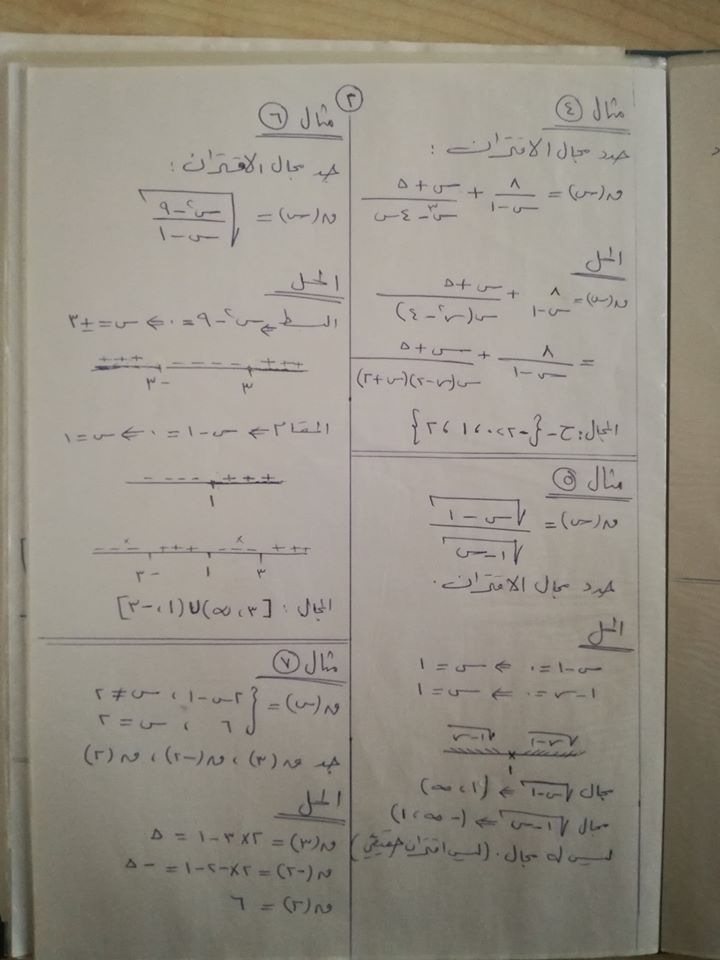 ٣
مثال ٤
حدد مجال الاقتران :
ق(س) = ٨/(س-١) + (س+٥)/(س³-٤س)
الحل
ق(س) = ٨/(س-١) + (س+٥)/(س(س²-٤))
= ٨/(س-١) + (س+٥)/(س(س-٢)(س+٢))
المجال: ح - {-٢، ٠، ١، ٢}
مثال ٥
ق(س) = √(س-١) / √(١-س)
حدد مجال الاقتران.
الحل
س-١=٠ ⇐ س=١
١-س=٠ ⇐ س=١
√(١-س) √(س-١)
١
مجال √(س-١) ⇐ (١، ∞)
مجال √(١-س) ⇐ (-∞، ١)
ليس له مجال. (ليس اقتران حقيقي)
مثال ٦
جد مجال الاقتران :
ق(س) = √((س²-٩)/(س-١))
الحل
البسط ⇐ س²-٩=٠ ⇐ س=±٣
+++ ---- +++
-٣ ٣
المقام ⇐ س-١=٠ ⇐ س=١
---- +++
١
--×-- +++ --×-- +++
-٣ ١ ٣
المجال : [٣، ∞)∪(١، -٣]
مثال ٧
ق(س) = { ٢س-١ ، س≠٢
٦ ، س=٢
جد ق(٣) ، ق(-٢) ، ق(٢)
الحل
ق(٣) = ٢×٣-١ = ٥
ق(-٢) = ٢×-٢-١ = -٥
ق(٢) = ٦